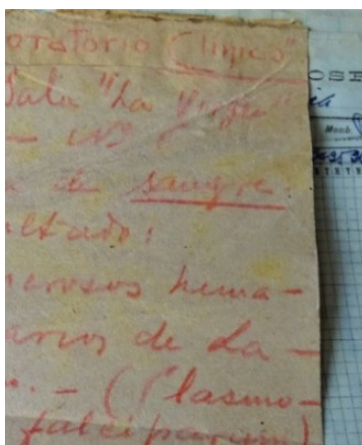 oratorio Clínico"
Sala "La Virgen"
a de sangre.
ultado:
merosos hema-
arios de La-
.. - (Plasmo-
falciparum)